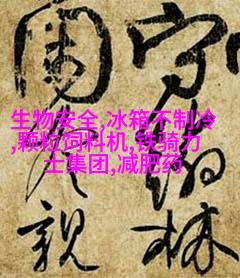 生物安全,冰箱不制冷
,颗粒饲料机,铁骑力
士集团,减肥药
守
林
親